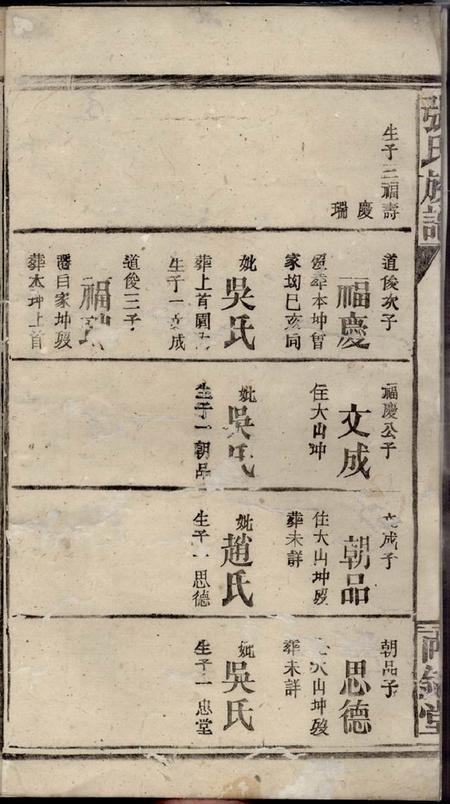 張氏族譜
生子三福壽
慶
瑞
道俊次子
福慶
葬本坤曾
家坳巳亥同
妣吳氏
葬上首園
生子一文成
道俊三子
福瑞
醫曰家坤歿
葬本坤上首
福慶公子
文成
住大山坤
妣吳氏
生子一朝品
文成子
朝品
住大山坤歿
葬未詳
妣趙氏
生子一思德
朝品子
思德
住大山坤歿
葬未詳
妣吳氏
生子一忠堂
堂